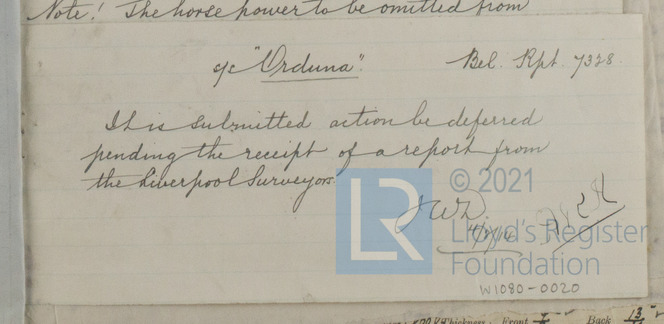 Note! The horse power to be omitted from
s/s "Orduna". Bel. Rpt. 7328.
It is submitted action be deferred
pending the receipt of a report from
the Liverpool Surveyors.
LR
© 2021
Lloyd's Register
Foundation
W1080-0020
Thickness: Front Back 13